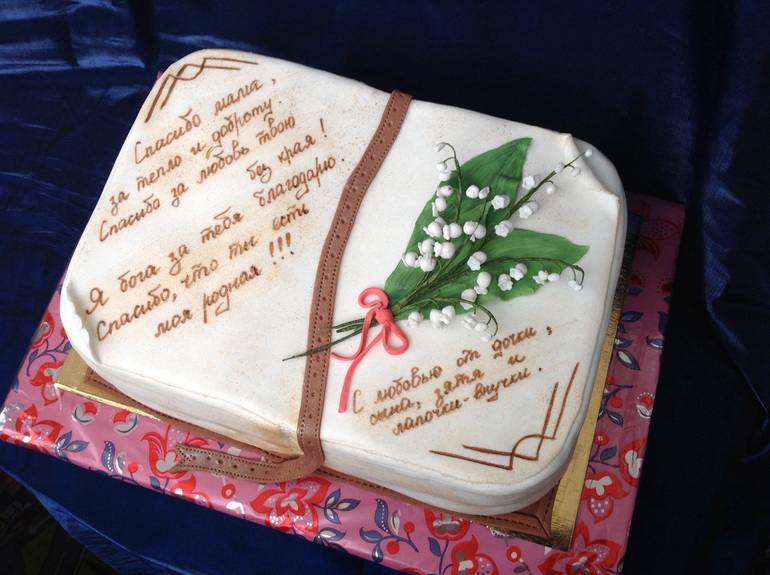 Спасибо мама,
за тепло и доброту.
Спасибо за любовь твою
без края!
Я бога за тебя благодарю.
Спасибо, что ты есть
моя родная!!!
С любовью от дочки,
сына, зятя и
лапочки-внучки.